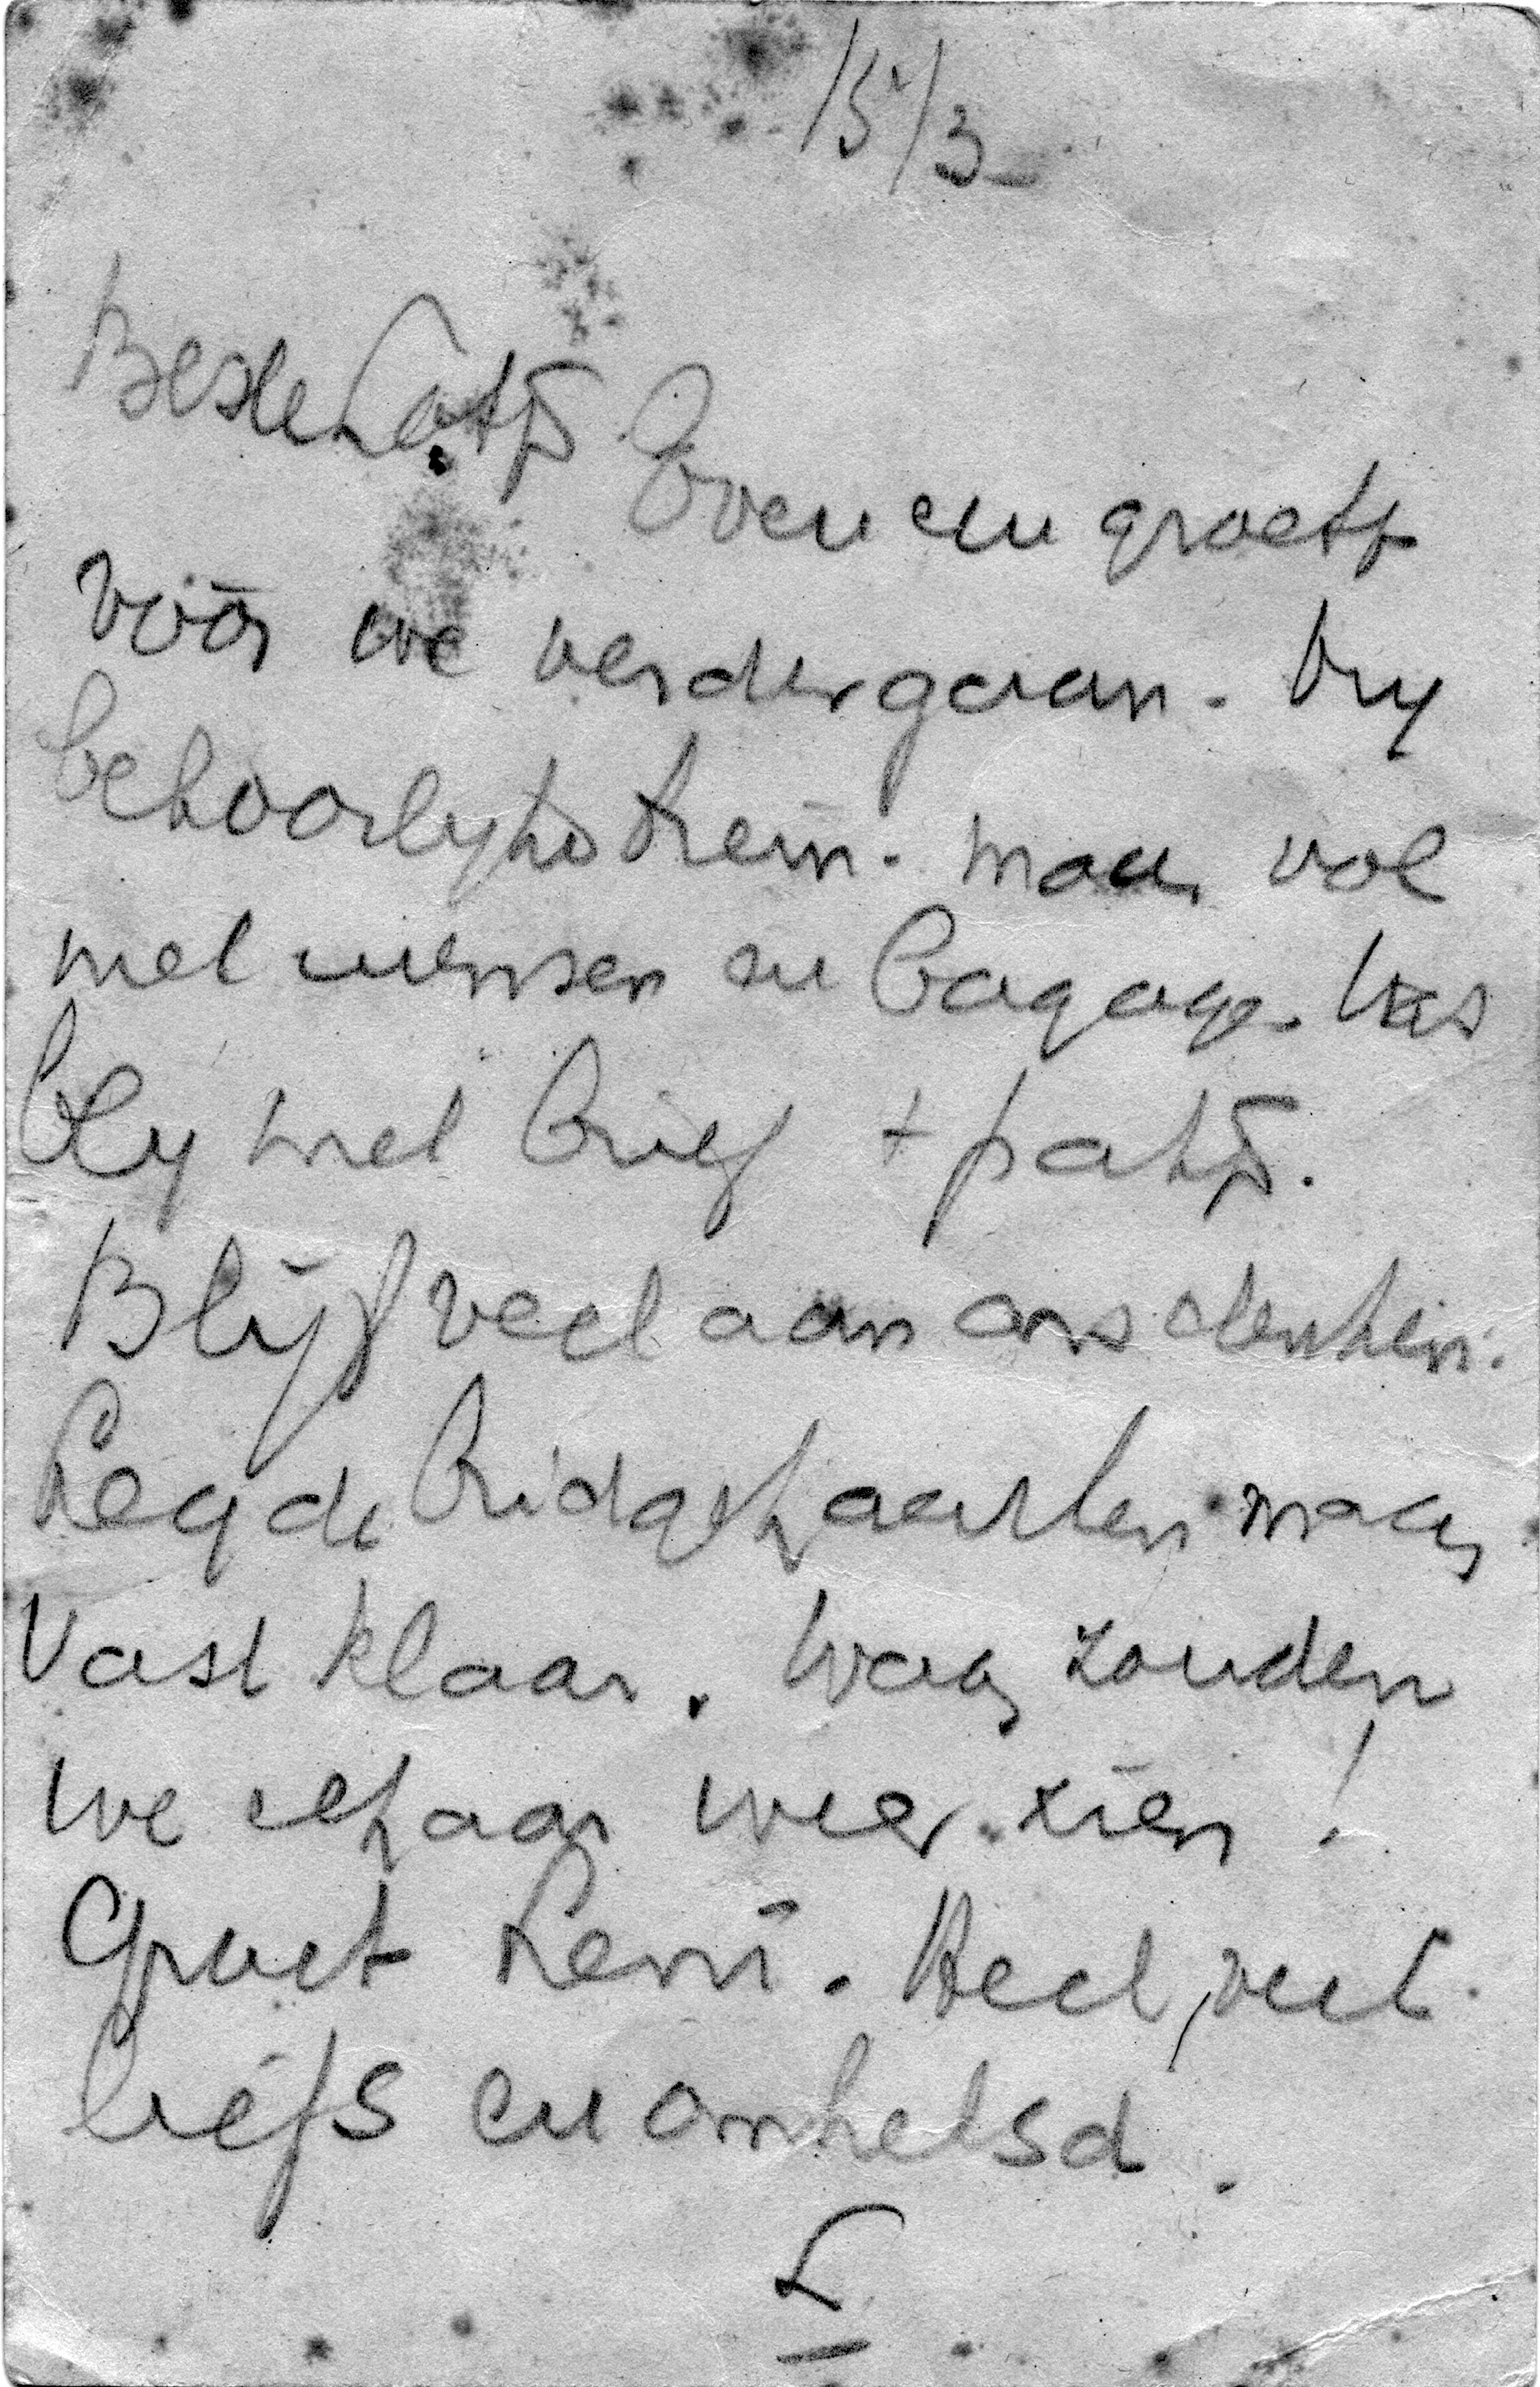 15/3
Beste Lotje Even een groetje
vóór we verdergaan. Vry
behoorlyke trein. maar vol
met mensen en bagage. Was
bly met brief + pakje.
Blijf veel aan ons denken.
Leg de bridgekaarten maar
vast klaar. Waar zouden
we elkaar weer zien!
Groet Leni. Heel, veel
liefs en omhelsd.
L